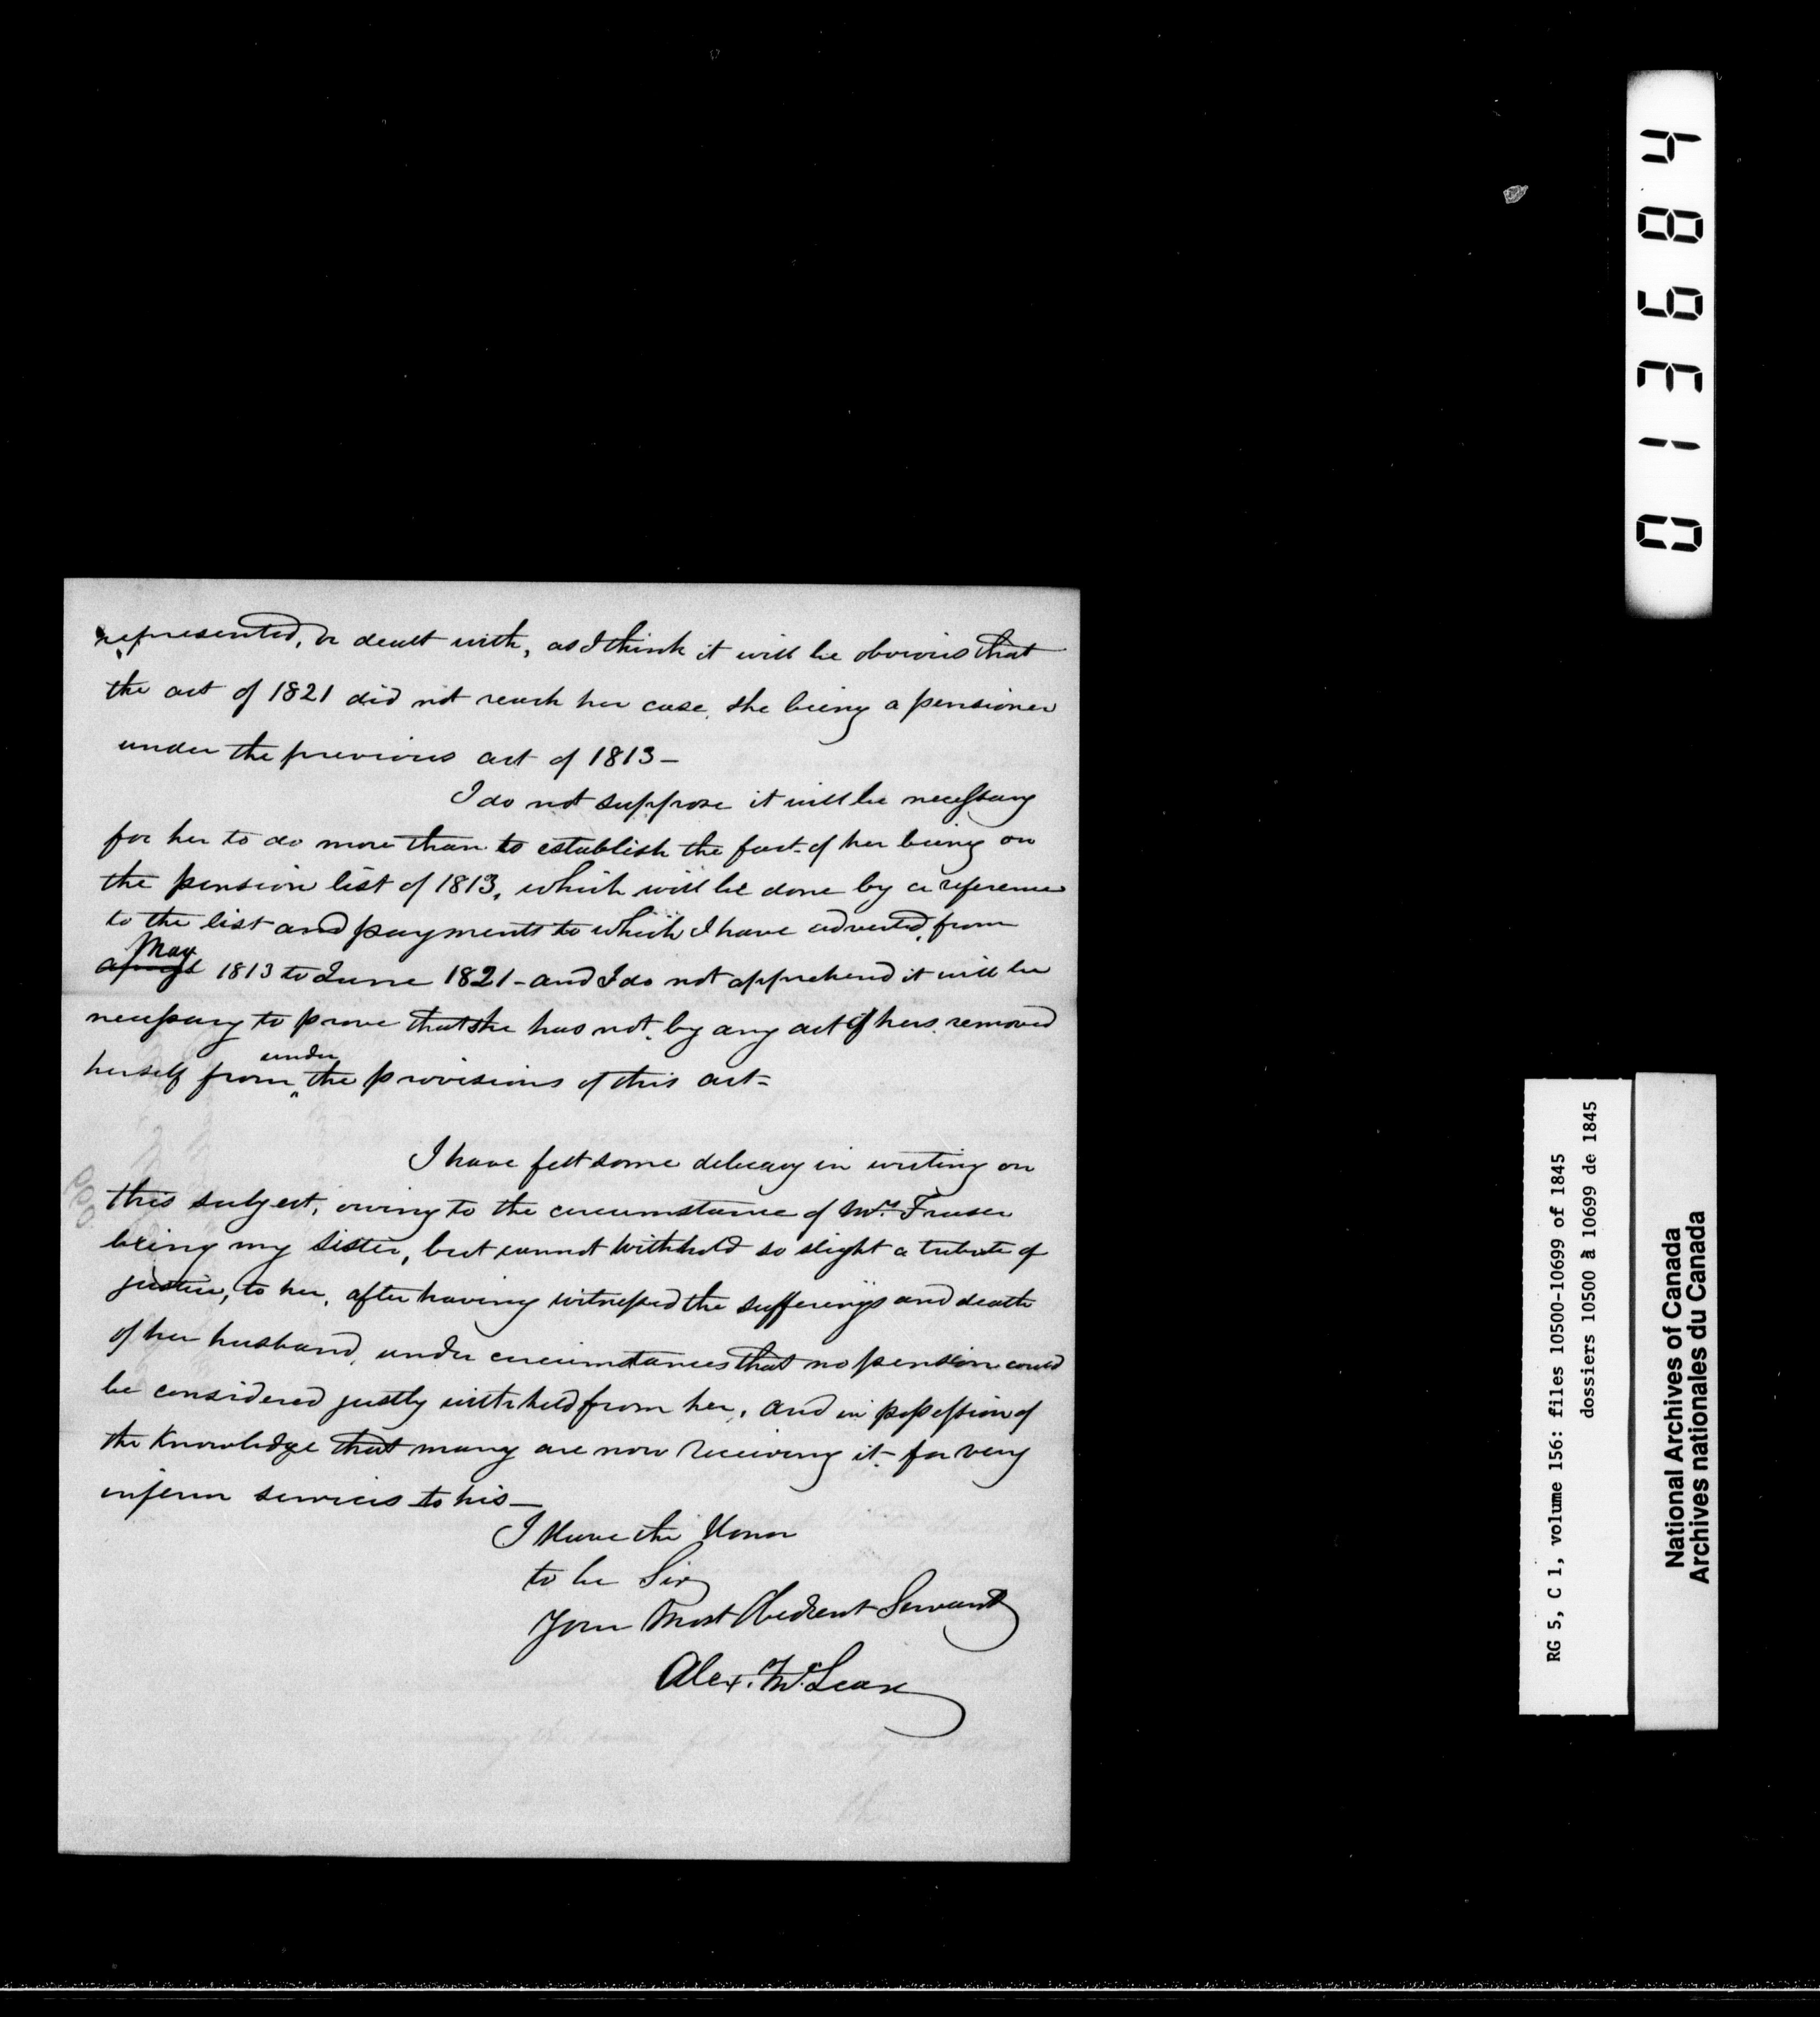 represented, or dealt with, as I think it will be obvious that
the act of 1821 did not reach her case, she being a pensioner
under the previous act of 1813 —
I do not suppose it will be necessary
for her to do more than to establish the fact of her being on
the pension list of 1813, which will be done by a reference
to the list and payments to which I have adverted, from
May
1813 to June 1821 - and I do not apprehend it will be
necessary to prove that she has not, by any act of hers, removed
under
herself from ‸ the provisions of this act =
I have felt some delicacy in writing on
this subject, owing to the circumstance of Mrs. Fraser
being my sister, but cannot withhold so slight a tribute of
justice, to her, after having witnessed the sufferings and death
of her husband, under circumstances that no pension could
be considered justly withheld from her, and in possession of
the knowledge that many are now receiving it - for very
inferior services to his —
I Have the Honor
to be Sir
Your Most Obedient Servant
Alex. McLean
013684
RG 5, C 1, volume 156: files 10500-10699 of 1845
dossiers 10500 à 10699 de 1845
National Archives of Canada
Archives nationales du Canada